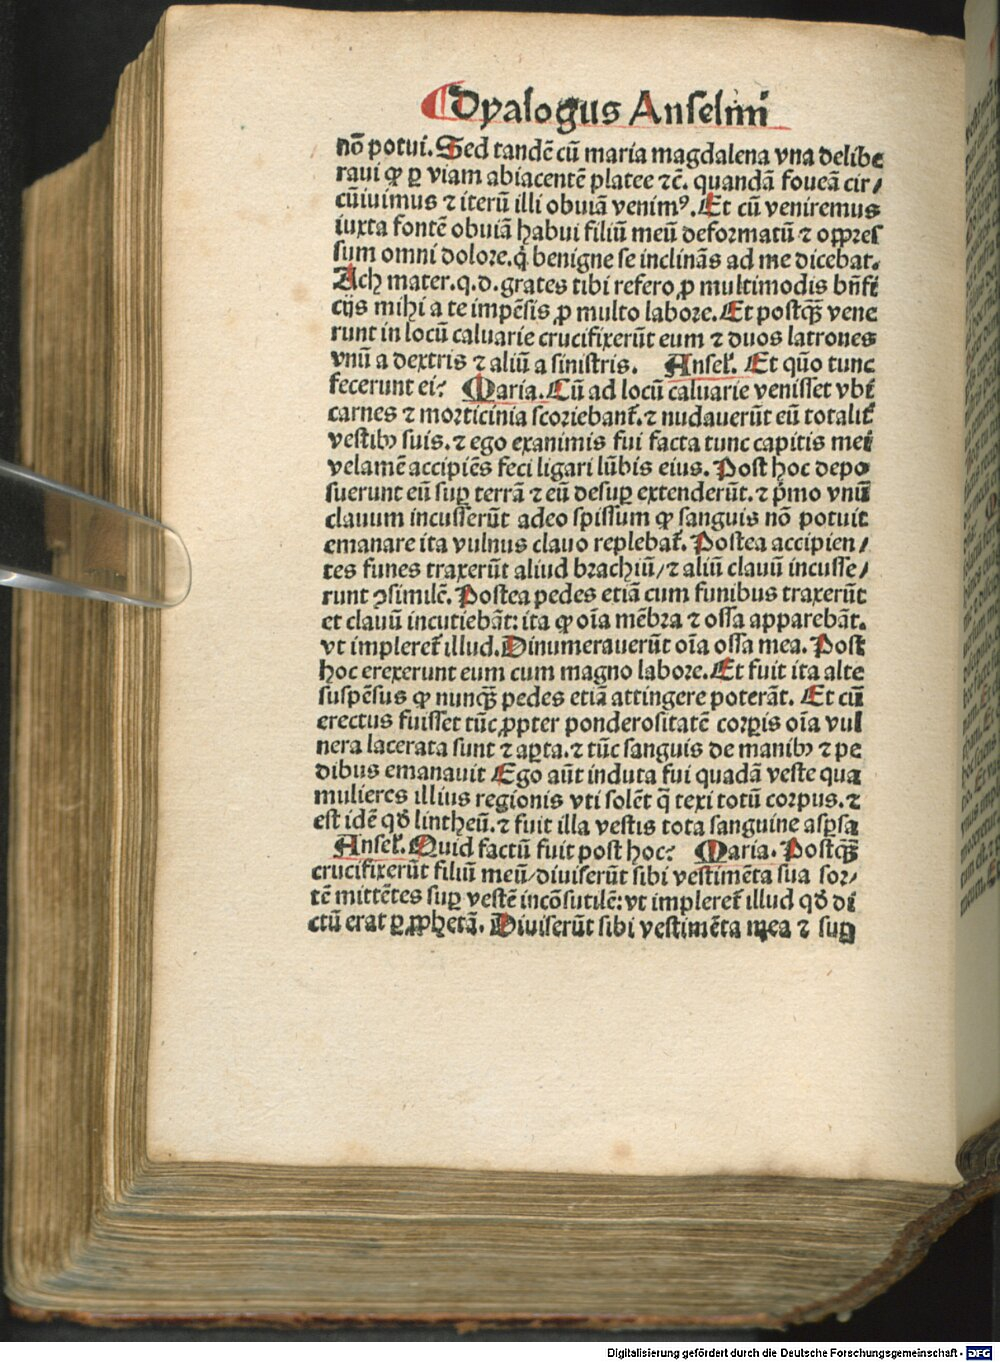 Dyalogus Anselmi
nō potui. Sed tandē cū maria magdalena vna delibe
raui ꝙ ꝑ viam abiacentē platee ⁊ē. quandā foueā cir/
cūiuimus ⁊ iterū illi obuiā venimꝰ. Et cū veniremus
iuxta fontē obuiā habui filiū meū deformatū ⁊ oppres
sum omni dolore. q̇ benigne se inclinās ad me dicebat.
Ach mater. q.d. grates tibi refero ꝓ multimodis bn̄fi
cijs mihi a te impēsis ꝓ multo labore. Et postqꝫ̄ vene
runt in locū caluarie crucifixerūt eum ⁊ duos latrones
vnū a dextris ⁊ aliū a sinistris. Anseł. Et quō tunc
fecerunt ei? Maria. Cū ad locū caluarie venisset vbi
carnes ⁊ morticinia scoriebant̄. ⁊ nudauerūt eū totalit̄
vestibꝫ suis. ⁊ ego exanimis fui facta tunc capitis mei
velamē accipiēs feci ligari lūbis eius. Post hoc depo
suerunt eū suꝑ terrā ⁊ eū desuꝑ extenderūt. ⁊ pͥmo vnū
clauum incusserūt adeo spissum ꝙ sanguis nō potuit
emanare ita vulnus clauo replebat̄. Postea accipien/
tes funes traxerūt aliud brachiū/ ⁊ aliū clauū incusse/
runt ꝯsimilē. Postea pedes etiā cum funibus traxerūt
et clauū incutiebāt: ita ꝙ oīa mēbra ⁊ ossa apparebāt.
vt impleret̄ illud. Dinumerauerūt oīa ossa mea. Post
hoc erexerunt eum cum magno labore. Et fuit ita alte
suspēsus ꝙ nunqꝫ̄ pedes etiā attingere poterāt. Et cū
erectus fuisset tūc ꝓpter ponderositatē corꝑis oīa vul
nera lacerata sunt ⁊ aꝑta. ⁊ tūc sanguis de manibꝫ ⁊ pe
dibus emanauit Ego aūt induta fui quadā veste qua
mulieres illius regionis vti solēt q̄ texi totū corpus. ⁊
est idē qđ lintheū. ⁊ fuit illa vestis tota sanguine asꝑsa
Anseł. Quid factū fuit post hoc? Maria. Postqꝫ̄
crucifixerūt filiū meū/ diuiserūt sibi vestimēta sua sor/
tē mittētes suꝑ vestē incōsutilē: vt impleret̄ illud qđ di
ctū erat ꝑ ꝓphetā. Diuiserūt sibi vestimēta mea ⁊ suꝑ
Digitalisierung gefördert durch die Deutsche Forschungsgemeinschaft - DFG